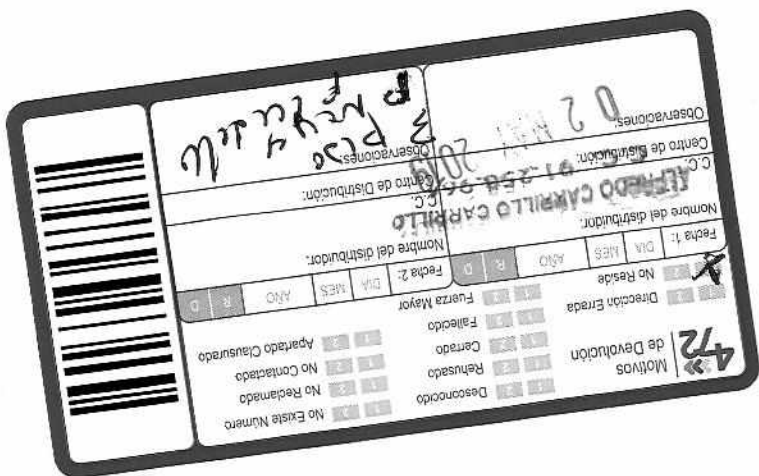 472
Motivos
de Devolución
1 2 Desconocido
1 2 Rehusado
1 2 Cerrado
1 2 Fallecido
1 2 Fuerza Mayor
1 2 No Existe Número
1 2 No Reclamado
1 2 No Contactado
1 2 Apartado Clausurado
1 2 Dirección Errada
1 2 No Reside
X
Fecha 1: DIA MES AÑO R D
Nombre del distribuidor:
ALFREDO CARRILLO CARRILLO
C.C.
Centro de Distribución:
Observaciones:
Fecha 2: DIA MES AÑO R D
Nombre del distribuidor:
C.C.
Centro de Distribución:
Observaciones:
3 Piso